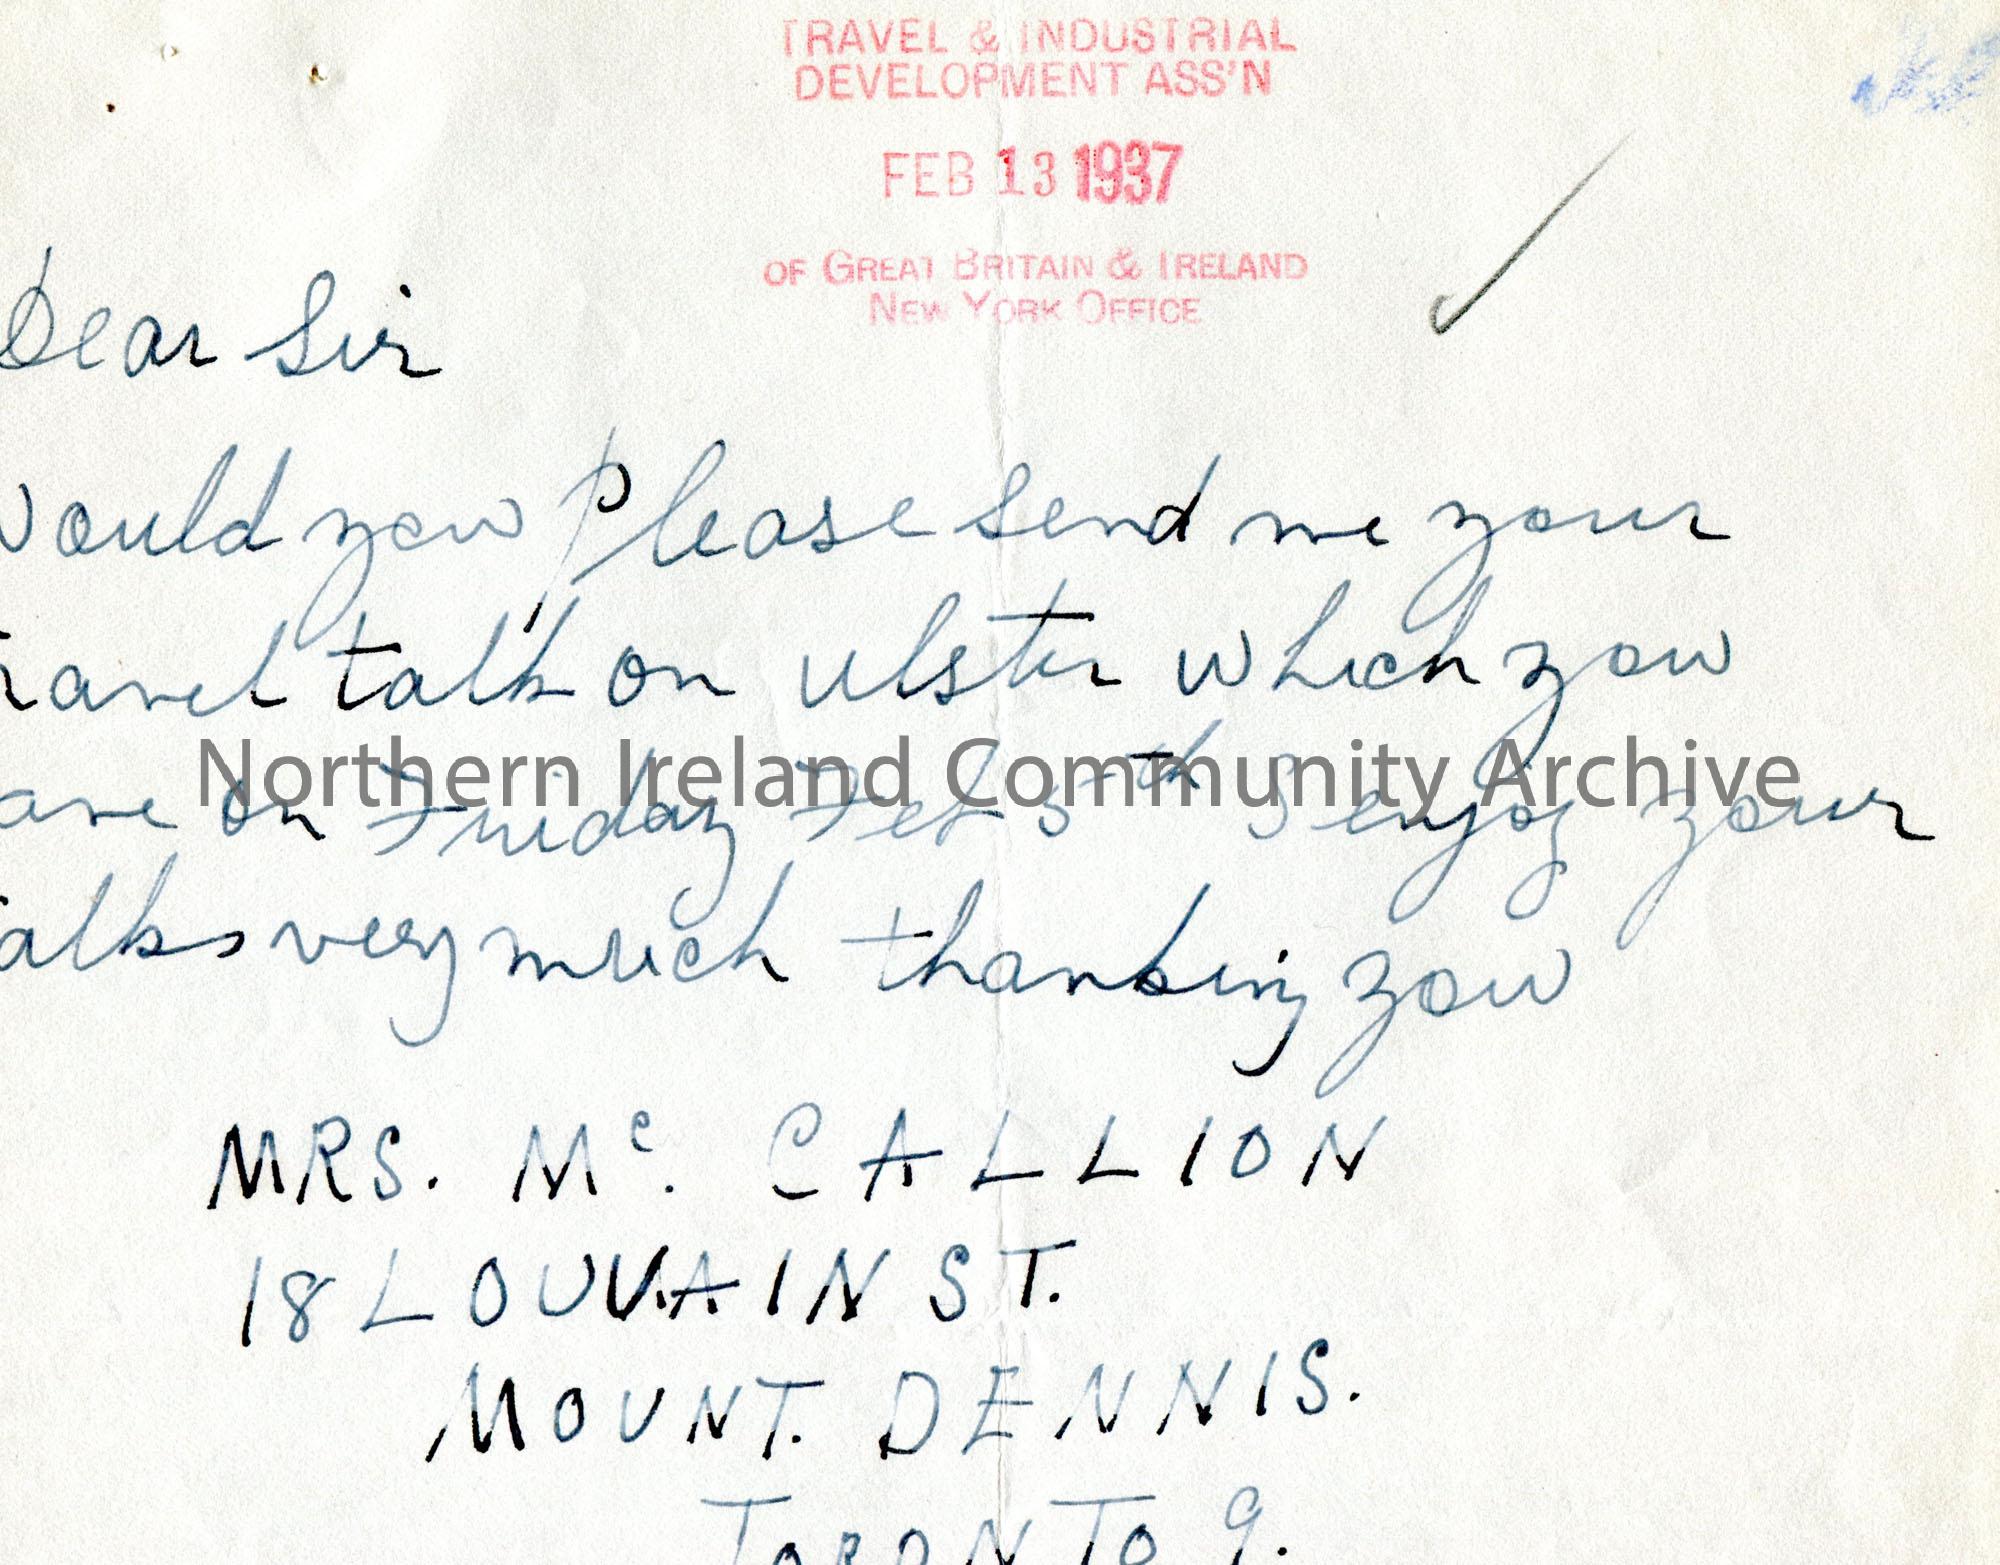 TRAVEL & INDUSTRIAL
DEVELOPMENT ASS'N
FEB 13 1937
OF GREAT BRITAIN & IRELAND
NEW YORK OFFICE
Dear Sir
Would you Please send me your
ravel talk on ulster which you
ave on Friday Feb 5th I enjoy your
alks very much thanking you
MRS. Mc. CALLION
18 LOUVAIN ST.
MOUNT. DENNIS.
TORONTO 9.
Northern Ireland Community Archive